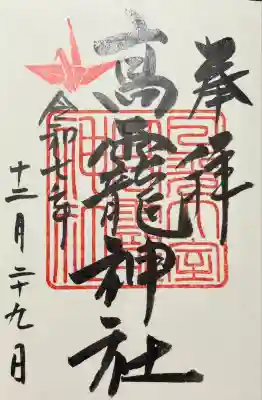 奉拝
高龗神社
令和七年
十二月二十九日